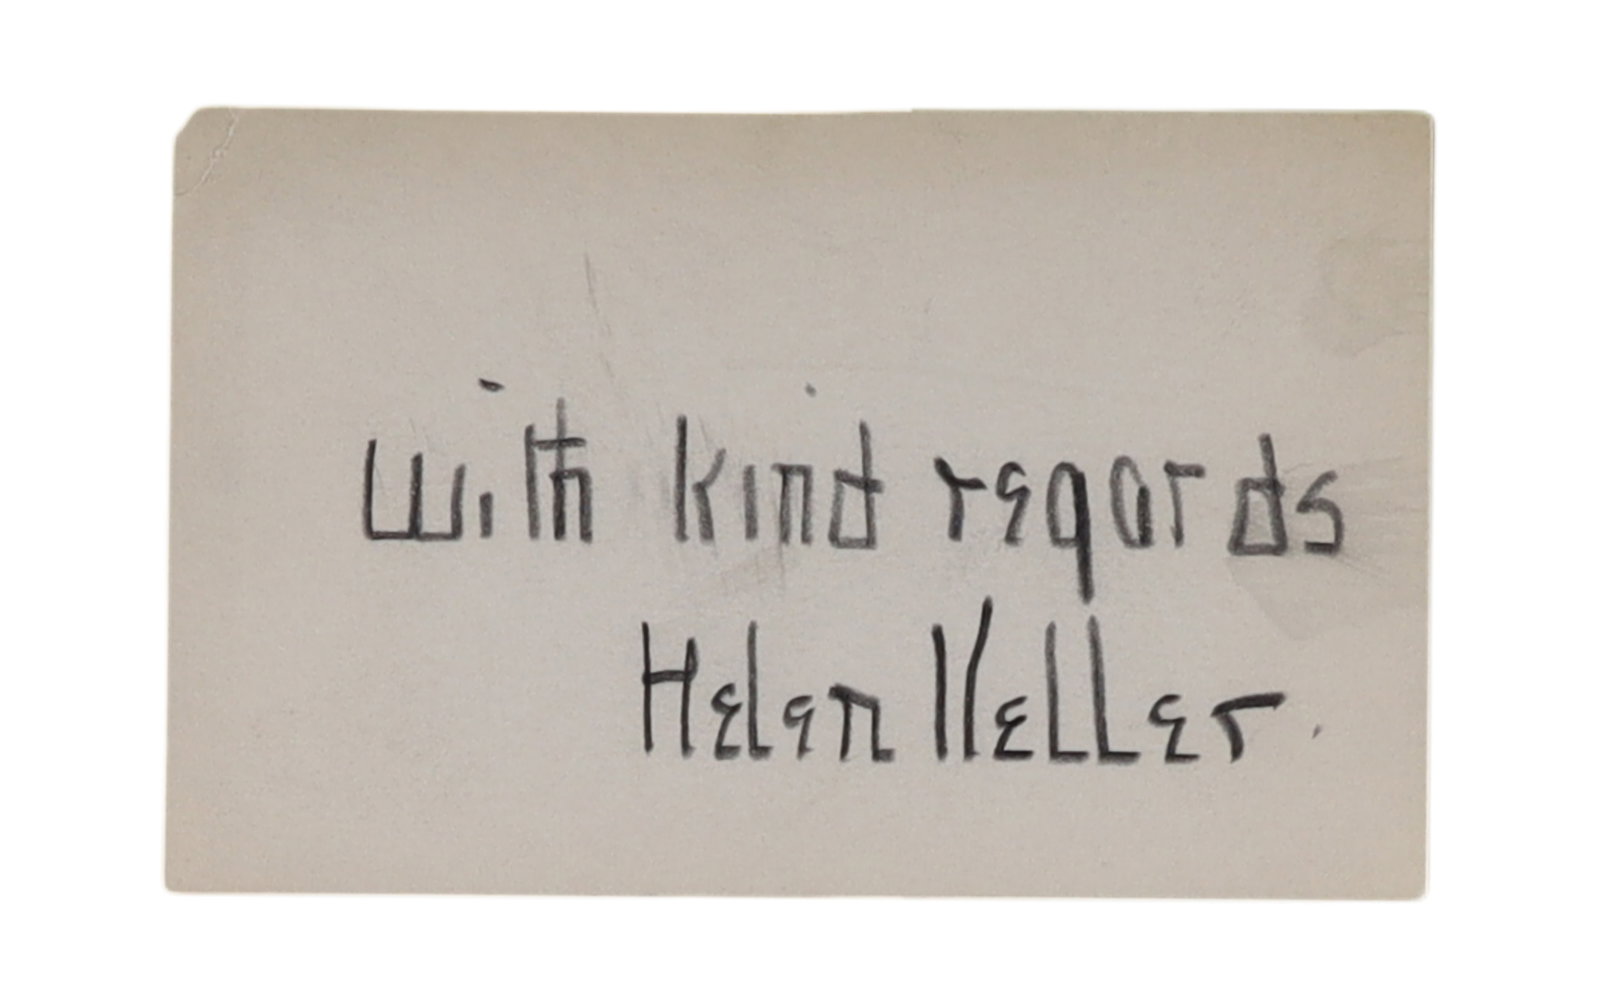 with kind regards
Helen Keller.